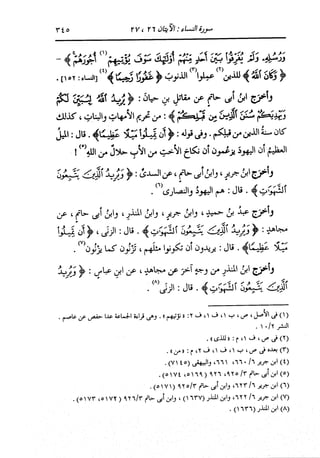 سورة النساء : الآيتان ٢٦ ، ٢٧ ٣٤٥
وَرُسُلِهِ، وَلَمْ يُفَرِّقُوا بَيْنَ أَحَدٍ مِّنْهُمْ أُوْلَٰٓئِكَ سَوْفَ يُؤْتِيهِمْ(١) أُجُورَهُمْ﴾ -
﴿وَكَانَ اللَّهُ﴾ للذين(٢) عملوا(٣) الذنوب ﴿غَفُورًا رَّحِيمًا﴾(٤) [النساء: ١٥٢] .
وأخرج ابنُ أبى حاتمٍ عن مقاتلِ بنِ حيانَ : ﴿يُرِيدُ اللَّهُ لِيُبَيِّنَ لَكُمْ
وَيَهْدِيَكُمْ سُنَنَ الَّذِينَ مِن قَبْلِكُمْ﴾ : من تحريمِ الأمهاتِ والبناتِ ، كذلك
كان سنةُ الذين من قبلِكم . وفى قولِه : ﴿أَن تَمِيلُوا مَيْلًا عَظِيمًا﴾ . قال : الميلُ
العظيمُ أن اليهودَ يزعُمون أن نكاحَ الأختِ من الأبِ حلالٌ من اللهِ(٥) !
وأخرج ابنُ جريرٍ ، وابنُ أبى حاتمٍ ، عن السدىِّ : ﴿وَيُرِيدُ الَّذِينَ يَتَّبِعُونَ
الشَّهَوَاتِ﴾ . قال : هم اليهودُ والنصارى(٦) .
وأخرج عبدُ بنُ حميدٍ ، وابنُ جريرٍ ، وابنُ المنذرِ ، وابنُ أبى حاتمٍ ، عن
مجاهدٍ : ﴿وَيُرِيدُ الَّذِينَ يَتَّبِعُونَ الشَّهَوَاتِ﴾ . قال : الزنى ، ﴿أَن تَمِيلُوا
مَيْلًا عَظِيمًا﴾ . قال : يريدون أن تكونوا مثلَهم ، تزنُون كما يزنُون(٧) .
وأخرج ابنُ المنذرِ من وجهٍ آخرَ عن مجاهدٍ ، عن ابنِ عباسٍ : ﴿وَيُرِيدُ
الَّذِينَ يَتَّبِعُونَ الشَّهَوَاتِ﴾ . قال : الزنى(٨) .
(١) فى الأصل ، ص ، ب ١ ، ف ١ ، ف ٢ : «نؤتيهم» . وهى قراءة الجماعة عدا حفص عن عاصم .
النشر ١٠/٢ .
(٢) فى ص ، ف ١ ، م : «للذى» .
(٣) بعده فى ص ، ب ١ ، ف ١ ، ف ٢ ، م : «من» .
(٤) ابن جرير ٦/ ٦٦٠، ٦٦١، والبيهقى (٧١٤٥) .
(٥) ابن أبى حاتم ٣/ ٩٢٥، ٩٢٦ (٥١٦٩، ٥١٧٤) .
(٦) ابن جرير ٦/ ٦٢٣، وابن أبى حاتم ٩٢٥/٣ (٥١٧١) .
(٧) ابن جرير ٦/ ٦٢٢، وابن المنذر (١٦٣٧) ، وابن أبى حاتم ٩٢٦/٣ (٥١٧٢، ٥١٧٣) .
(٨) ابن المنذر (١٦٣٦) .